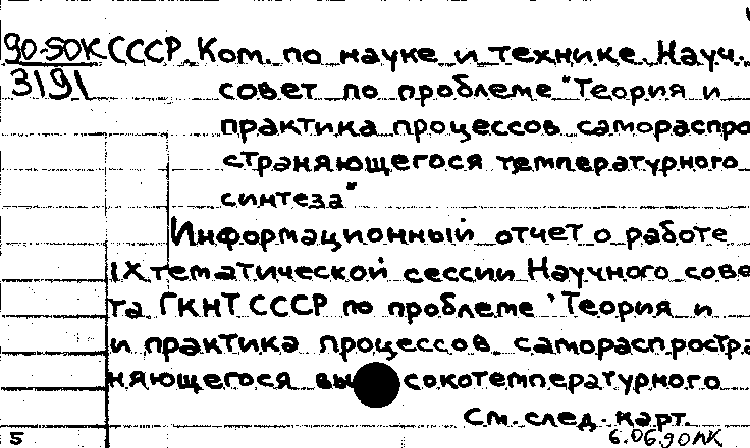 90-50К СССР. Ком. по науке и технике. Науч.
3191 совет по проблеме "Теория и
практика процессов самораспро
страняющегося температурного
синтеза"
Информационный отчет о работе
IX тематической сессии Научного сове
та ГКНТ СССР по проблеме "Теория и
и практика процессов самораспростра
няющегося высокотемпературного
См. след. карт.
5 6.06.90